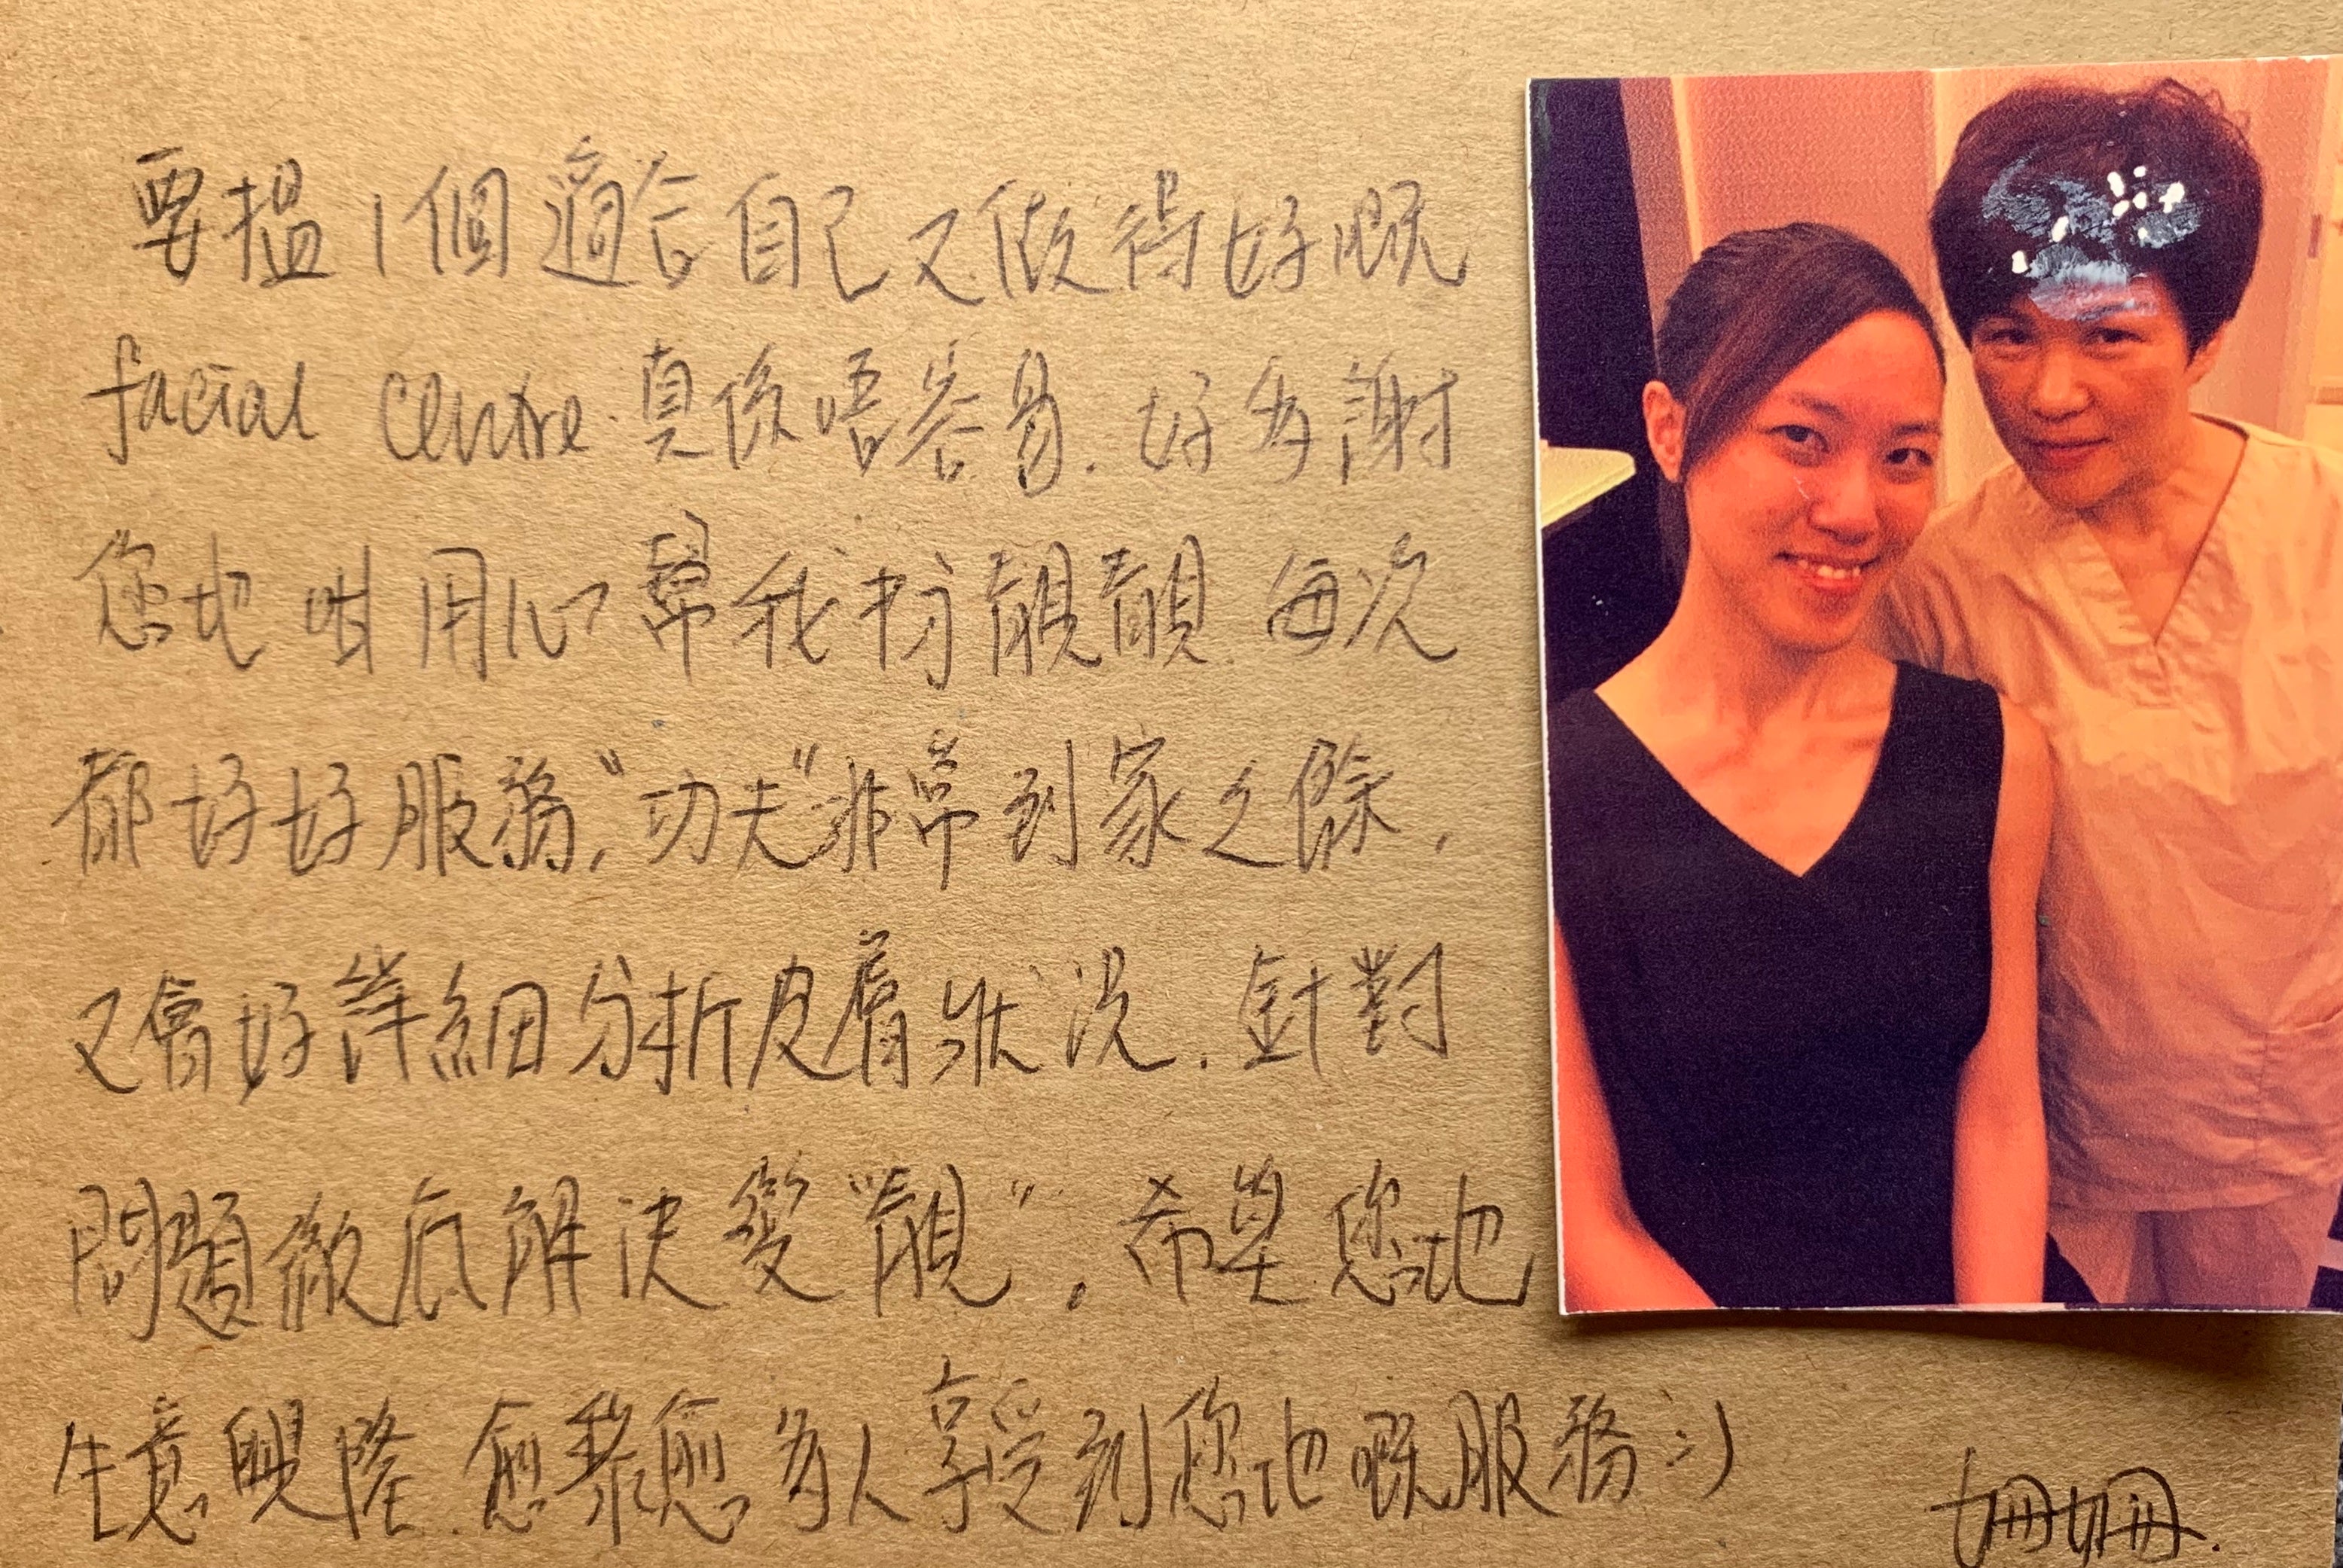 要搵1個適合自己又做得好嘅
facial centre 真係唔容易. 好多謝
您地咁用心幫我扮靚靚. 每次
都好好服務, "功夫"非常到家之餘,
又會好詳細分析皮膚狀況. 針對
問題徹底解決變"靚". 希望您地
生意興隆. 愈來愈多人享受到您地嘅服務 :)
姍姍.